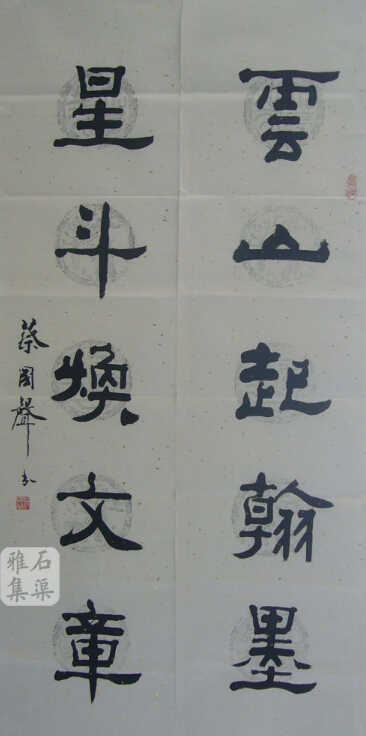 雲山起翰墨
星斗煥文章
蔡國聲书
石渠
雅集